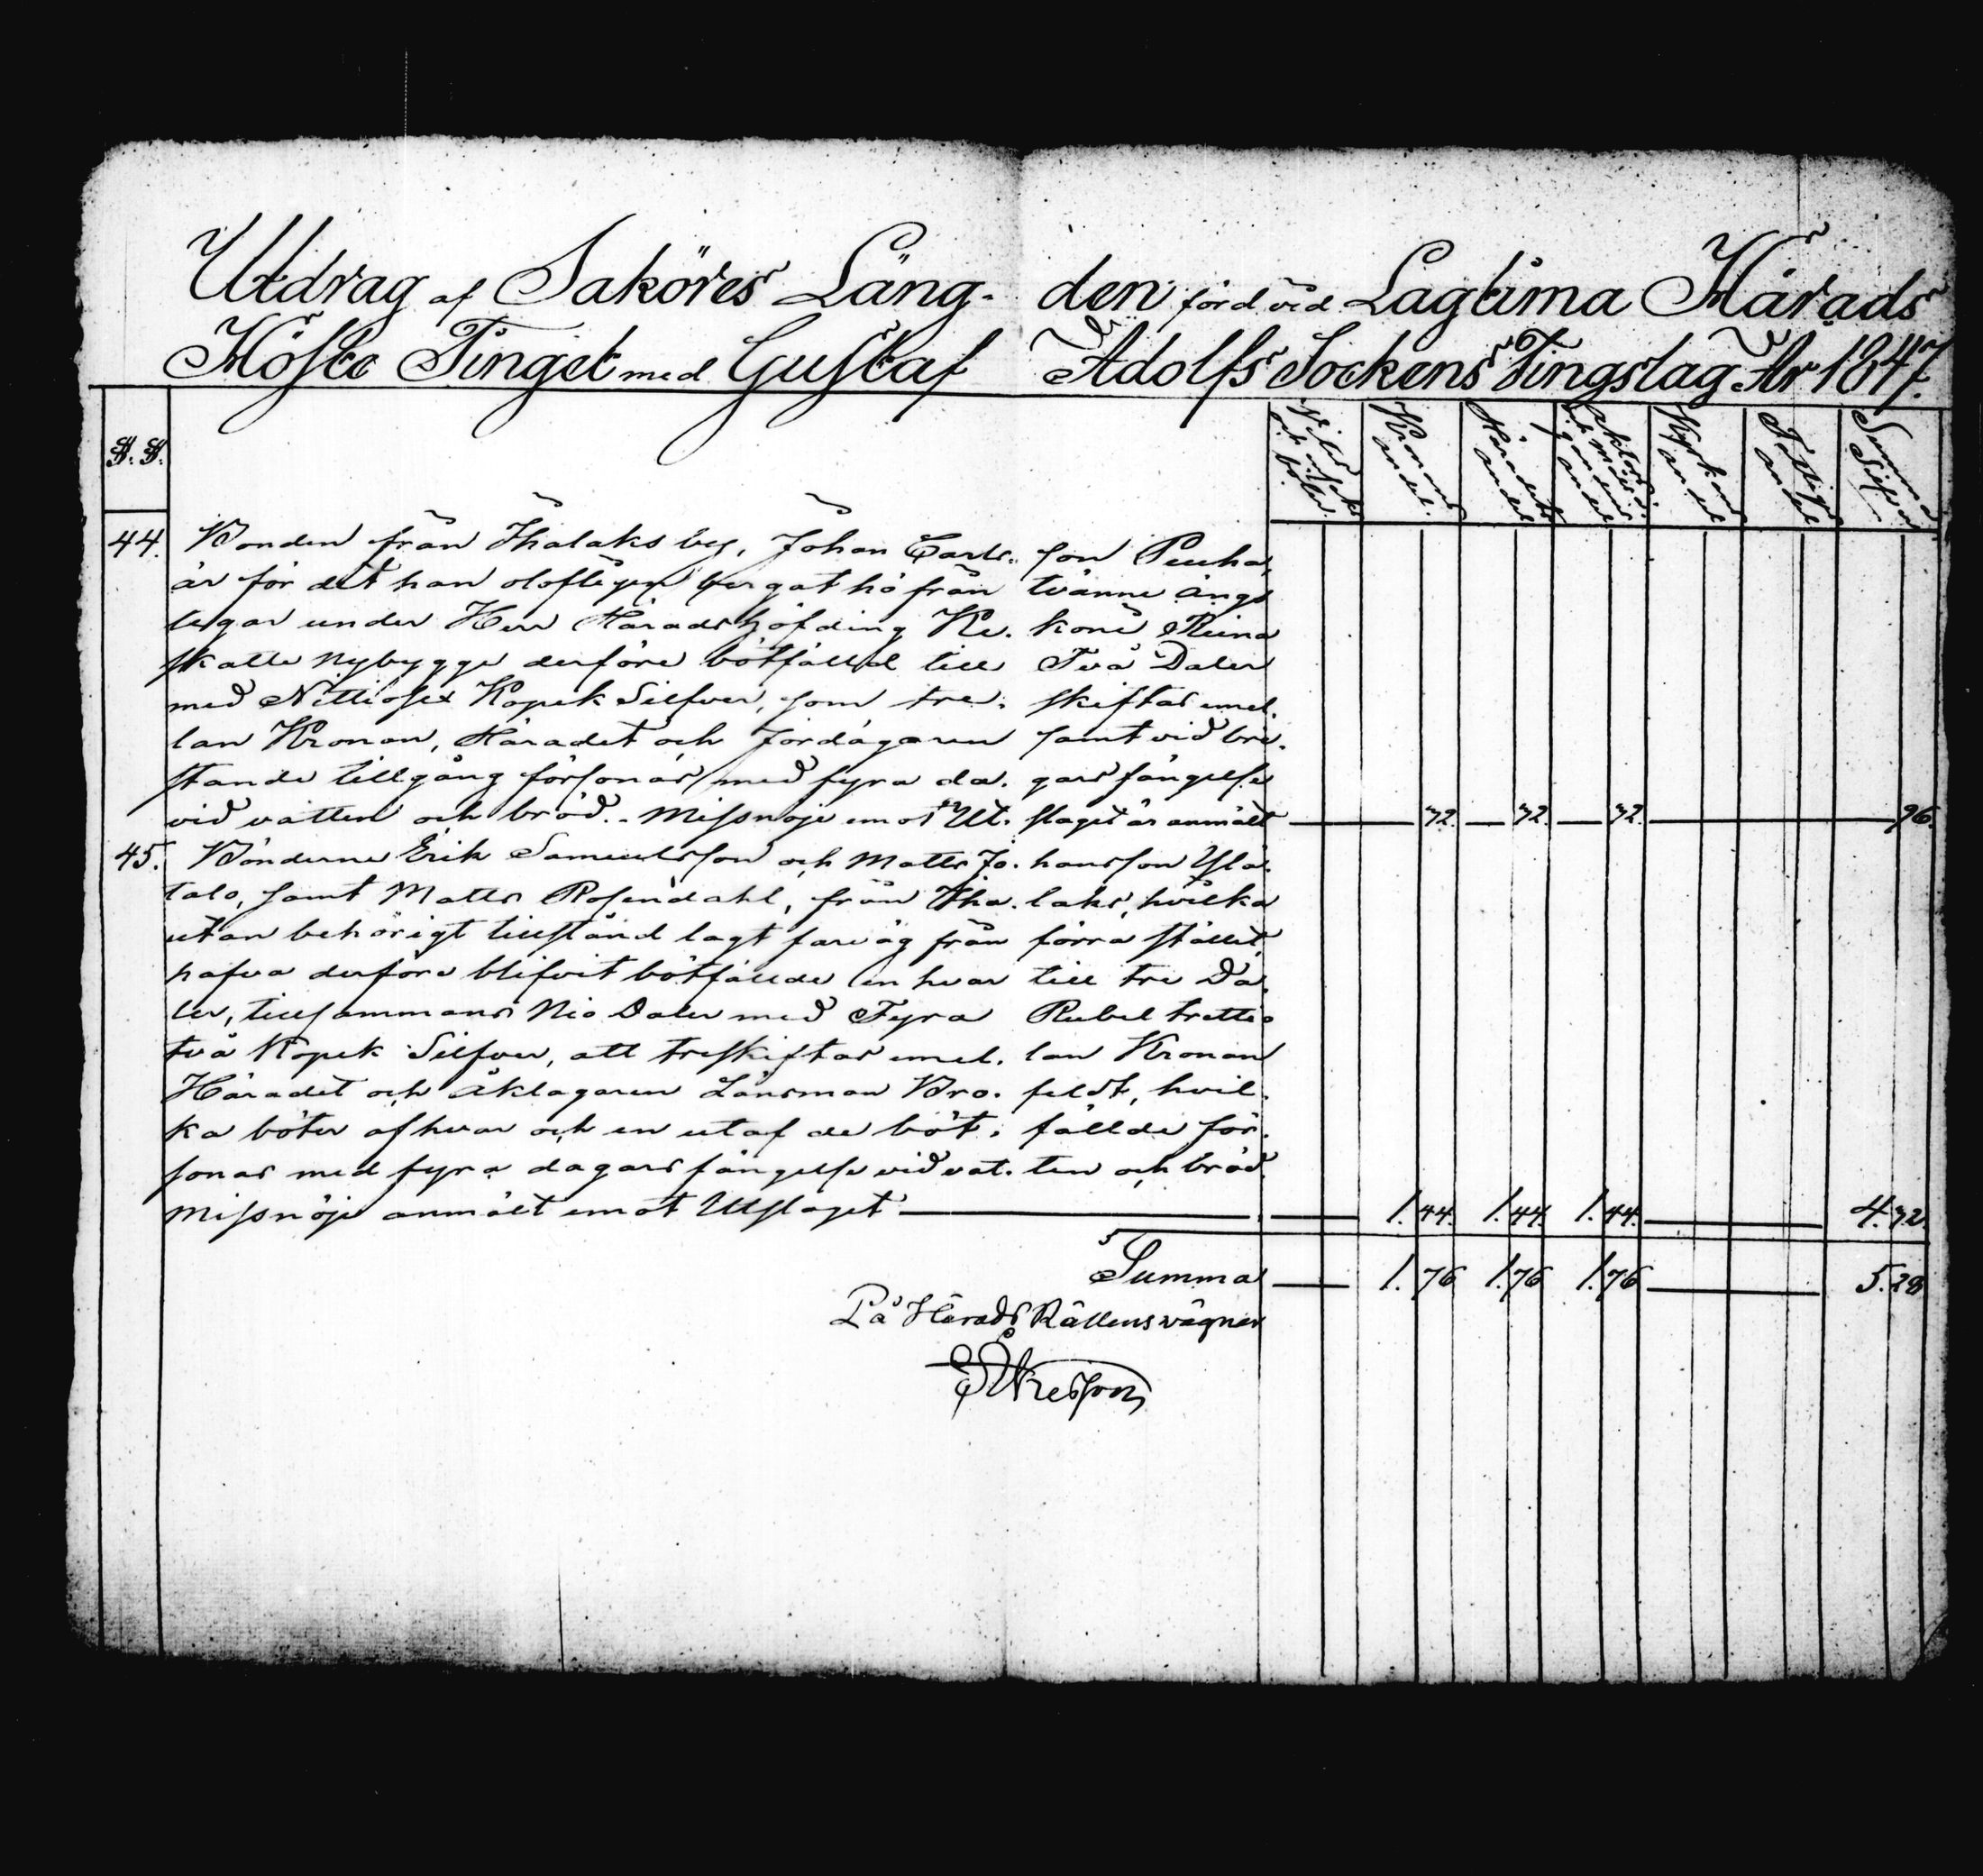 Utdrag af Saköres Läng- den förd vid Lagtima Härads
Höste Tinget med Gustaf Adolfs Sockens Tingslag År 1847.
§. §.
Vite och Saks böter
Kronans andel.
Häradets andel
Kyrkans andel
Fattiges andel
Summa Silfver
44. Bonden från Ihalaks by, Johan Carls- son Peuha,
är för det han olofligen bergat hö från tvänne ängs
legar under Herr Häradshöfding Ke- koni Reina
skatte nybygge derföre bötfälld till Två Daler
med Nittiosex Kopek Silfver, som tre- skiftas emel-
lan Kronan, Häradet och Jordägaren samt vid bri-
stande tillgång försonas med fyra da- gars fängelse
vid vatten och bröd. Missnöje emot Ut- slaget är anmält 32. 32. 32. 96.
45. Bönderne Erik Samuelsson och Matts Jo- hansson Ylä-
talo, samt Matts Rosendahl, från Iha- laks, hvilka
utan behörigt tillstånd lagt farväg från förra stället,
hafva derföre blifvit bötfällde en hvar till tre Da-
ler, tillsammans Nio Daler med Fyra Rubel trettio
två Kopek Silfver, att treskiftas emel- lan Kronan
Häradet och Åklagaren Länsman Bro- feldt, hvil-
ka böter af hvar och en utaf de böt- fällde för-
sonas med fyra dagars fängelse vid vat- ten och bröd.
Missnöje anmält emot Utslaget 1. 44. 1. 44. 1. 44. 4. 32.
Summa 1. 76 1. 76 1. 76 5. 28
På Härads Rättens vägnar